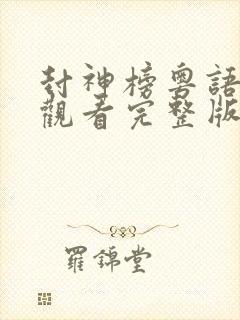 封神榜粵語
觀看完整版
羅錦堂